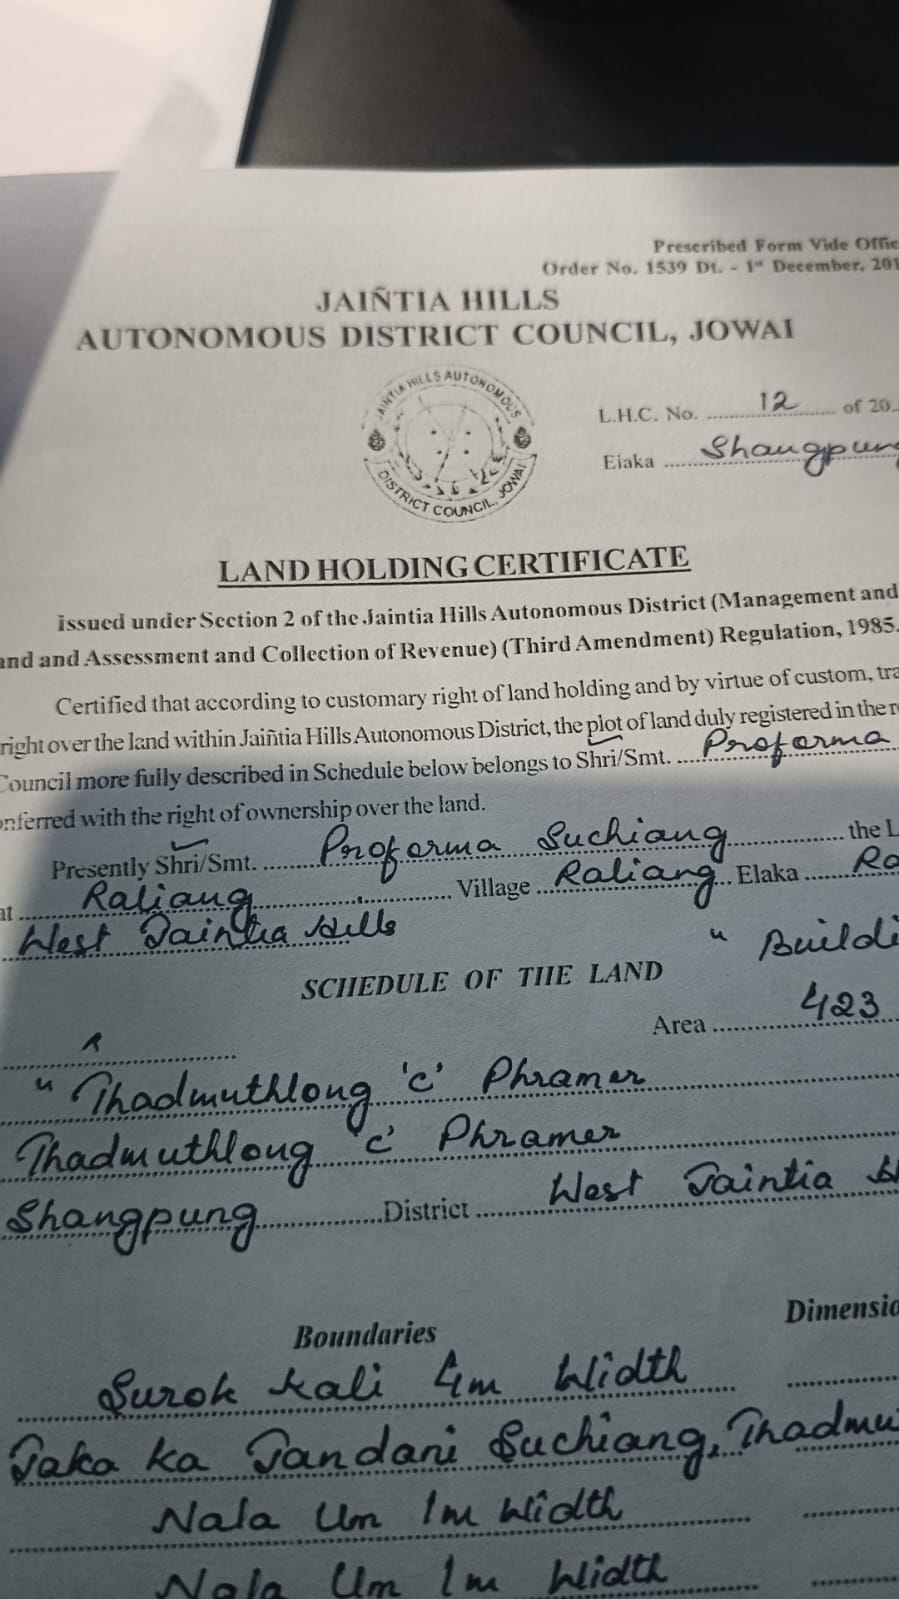 Prescribed Form Vide Offic
Order No. 1539 Dt. - 1st December, 201
JAIÑTIA HILLS
AUTONOMOUS DISTRICT COUNCIL, JOWAI
JAINTIA HILLS AUTONOMOUS
DISTRICT COUNCIL, JOWAI
L.H.C. No. 12 of 20
Elaka Shangpung
LAND HOLDING CERTIFICATE
issued under Section 2 of the Jaintia Hills Autonomous District (Management and
and and Assessment and Collection of Revenue) (Third Amendment) Regulation, 1985.
Certified that according to customary right of land holding and by virtue of custom, tra
right over the land within Jaiñtia Hills Autonomous District, the plot of land duly registered in the r
Council more fully described in Schedule below belongs to Shri/Smt. Proforma
onferred with the right of ownership over the land.
Presently Shri/Smt. Proforma Suchiang the L
at Raliang Village Raliang Elaka Ra
West Jaintia Hills
SCHEDULE OF THE LAND " Buildi
Area 423
" Thadmuthlong 'C' Phramer
Thadmuthlong 'C' Phramer
Shangpung District West Jaintia H
Boundaries Dimensio
Surok Kali 4m Width
Jaka ka Jandani Suchiang, Thadmu
Nala Um 1m Width
Nala Um 1m Width